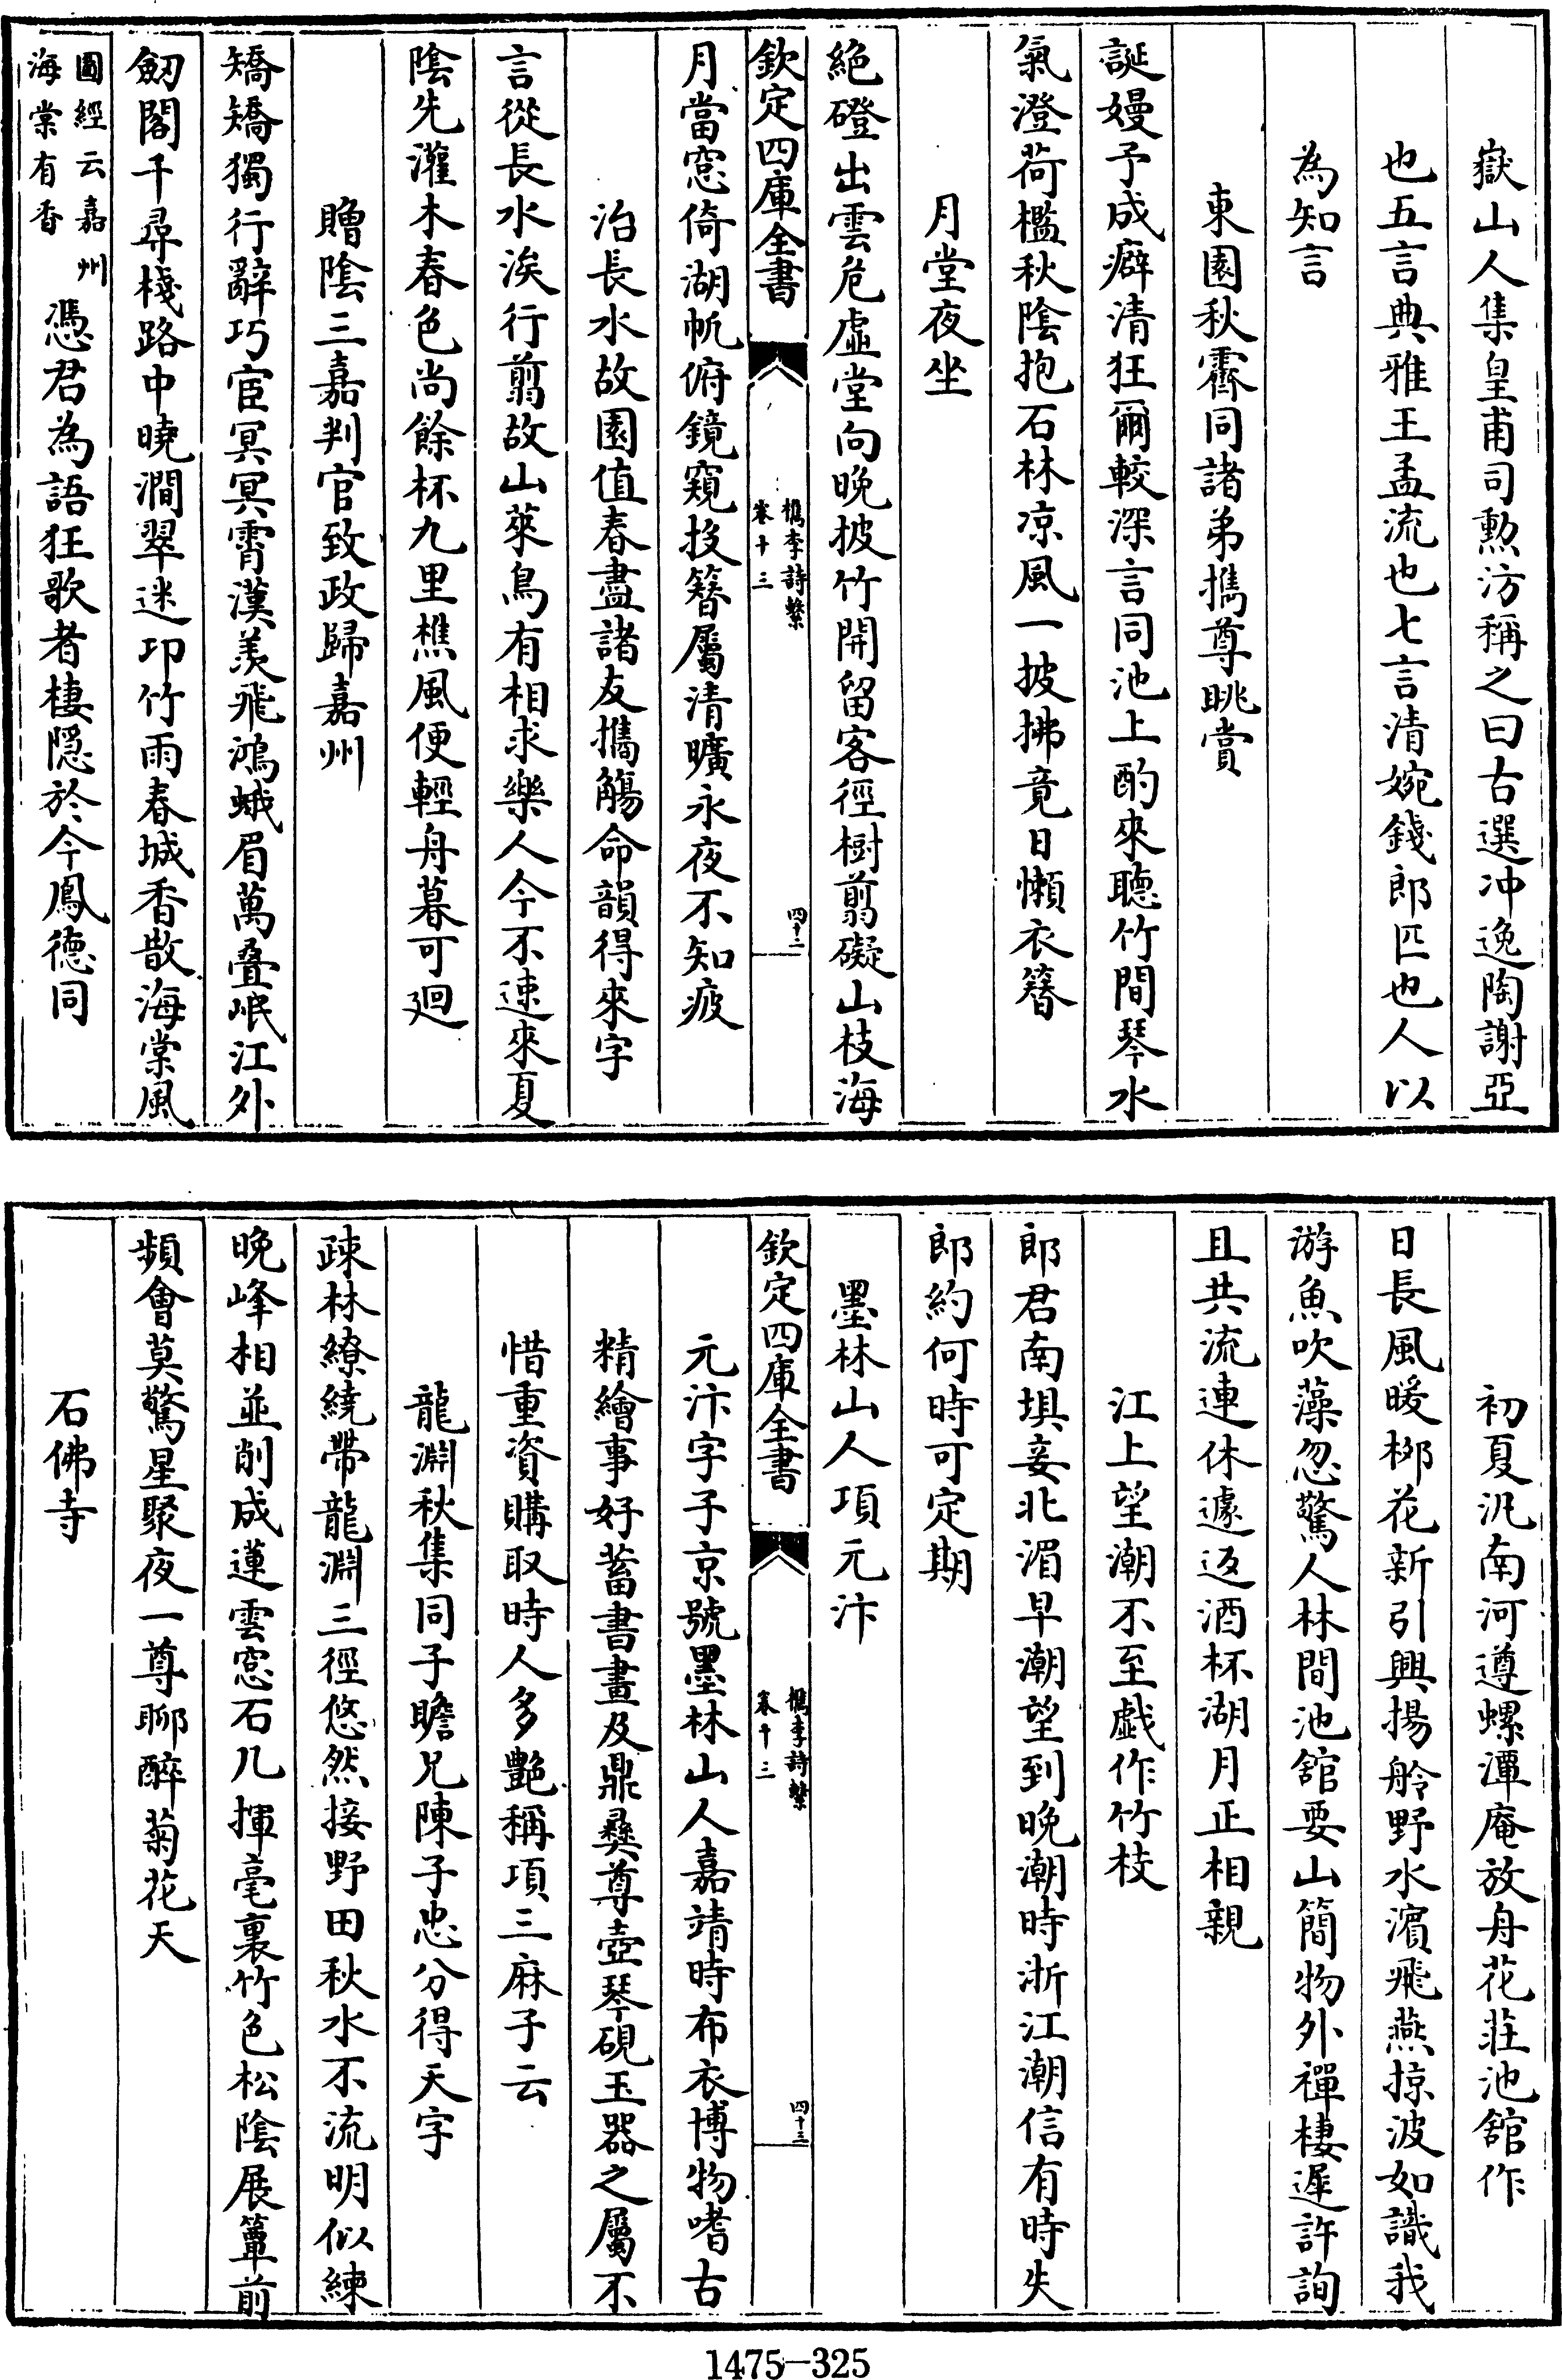 嶽山人集皇甫司勲汸稱之曰古選冲逸陶謝亞
也五言典雅王孟流也七言清婉錢郎匹也人以
為知言
東園秋霽同諸弟攜尊眺賞
誕嫚予成癖清狂爾較深言同池上酌來聽竹間琴水
氣澄荷檻秋陰抱石林凉風一披拂竟日懶衣簪
月堂夜坐
絶磴出雲危虛堂向晚披竹開留客徑樹翦礙山枝海
欽定四庫全書
檇李詩繫
卷十三
四十二
月當窓倚湖帆俯鏡窺投簪屬清曠永夜不知疲
治長水故園值春盡諸友攜觴命韻得來字
言從長水涘行翦故山萊鳥有相求樂人今不速來夏
陰先灌木春色尚餘杯九里樵風便輕舟暮可迴
贈陰三嘉判官致政歸嘉州
矯矯獨行辭巧宦冥冥霄漢羡飛鴻蛾眉萬疊岷江外
劒閣千尋棧路中曉澗翠迷卭竹雨春城香散海棠風
圖經云嘉州
海棠有香
憑君為語狂歌者棲隠於今鳳德同
初夏汎南河遵螺潭庵放舟花莊池舘作
日長風暖栁花新引興揚舲野水濵飛燕掠波如識我
游魚吹藻忽驚人林間池舘要山簡物外禪棲遲許詢
且共流連休遽返酒杯湖月正相親
江上望潮不至戯作竹枝
郎君南埧妾北湄早潮望到晚潮時浙江潮信有時失
郎約何時可定期
墨林山人項元汴
欽定四庫全書
檇李詩繫
卷十三
四十三
元汴字子京號墨林山人嘉靖時布衣博物嗜古
精繪事好蓄書畫及鼎彝尊壺琴硯玉器之屬不
惜重資購取時人多艶稱項三麻子云
龍淵秋集同子瞻兄陳子忠分得天字
疎林繚繞帶龍淵三徑悠然接野田秋水不流明似練
晚峰相並削成蓮雲窓石几揮毫裏竹色松陰展簟前
頻會莫驚星聚夜一尊聊醉菊花天
石佛寺
1475-325